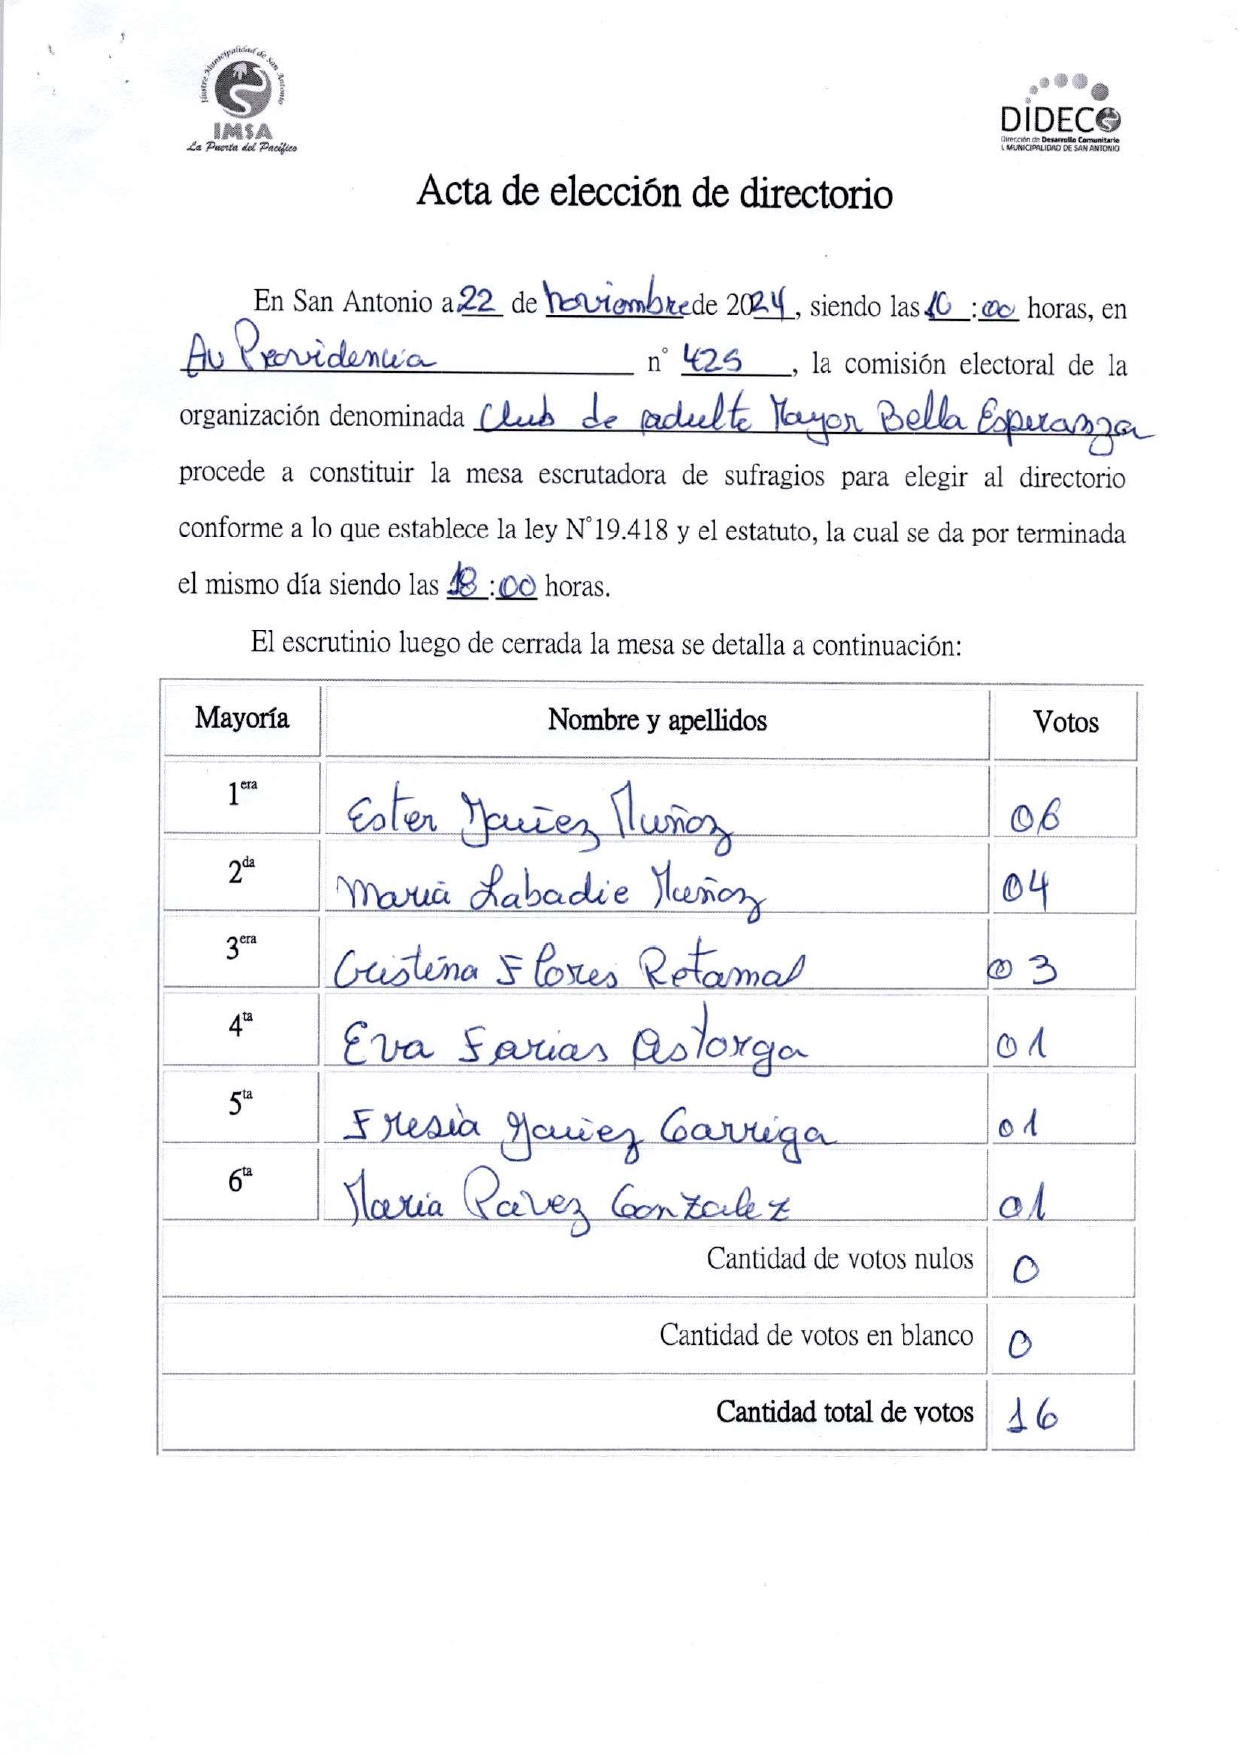 Ilustre Municipalidad de San Antonio
IMSA
La Puerta del Pacífico
DIDECO
Dirección de Desarrollo Comunitario
I. MUNICIPALIDAD DE SAN ANTONIO
Acta de elección de directorio
En San Antonio a 22 de noviembre de 2024, siendo las 10:00 horas, en
Av Providencia n° 425, la comisión electoral de la
organización denominada Club de adulto Mayor Bella Esperanza
procede a constituir la mesa escrutadora de sufragios para elegir al directorio
conforme a lo que establece la ley N°19.418 y el estatuto, la cual se da por terminada
el mismo día siendo las 18:00 horas.
El escrutinio luego de cerrada la mesa se detalla a continuación:
Mayoría Nombre y apellidos Votos
1era Ester Yañez Muñoz 06
2da Maria Labadie Muñoz 04
3era Cristina Flores Retamal 03
4ta Eva Farias Astorga 01
5ta Fresia Yañez Garriga 01
6ta Maria Pavez Gonzalez 01
Cantidad de votos nulos 0
Cantidad de votos en blanco 0
Cantidad total de votos 16